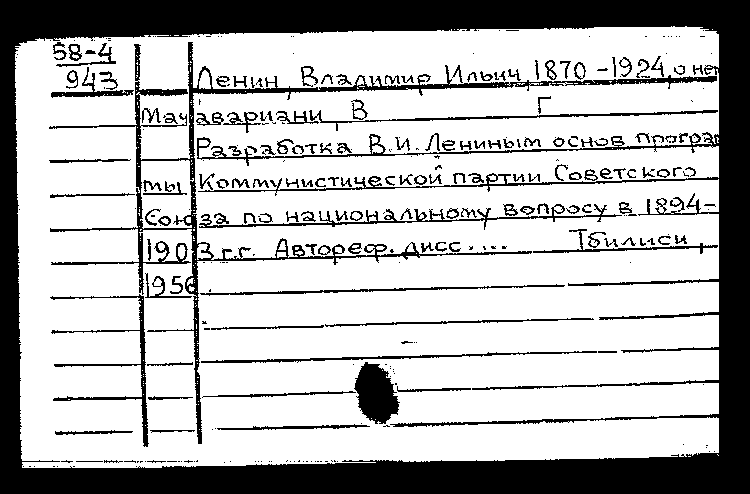 58-4
943
Ленин, Владимир Ильич, 1870-1924, о нем
Мачавариани, В Г
Разработка В.И. Лениным основ програм
мы Коммунистической партии Советского
Союза по национальному вопросу в 1894-
1903 г.г. Автореф. дисс.... Тбилиси,
1956.